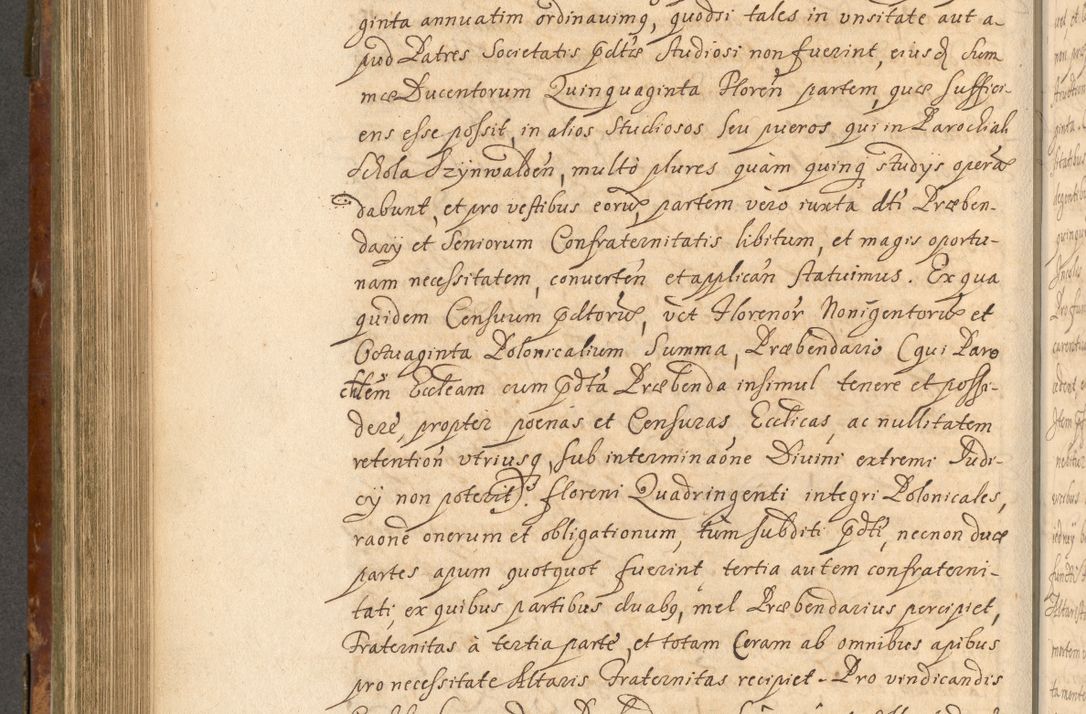 ginta annuatim ordinauimq, quodsi tales in vnsitate aut a-
pud Patres Societatis pdtæ studiosi non fuerint, eiusd Sum
mæ Ducentorum Quinquaginta Floren partem, quæ suffici-
ens esse possit, in alios Studiosos seu pueros qui in Parochiali
Schola Szynwalden, multò plures quàm quinq studijs operã
dabunt, et pro vestibus eorũ, partem vero iuxta dti Præben-
darij et Seniorum Confraternitatis libitum, et magis oportu-
nam necessitatem, conuerten et applican statuimus. Ex qua
quidem Censuum pdtorũ, vct Florenor Noningentorũ et
Octuaginta Polonicalium Summa, Præbendario (qui Paro
chlem Eccleam cum pdta Præbenda insimul tenere et possi-
dere, propter poenas et Censuras Ecclicas, ac nullitatem
retention vtriusq, sub interminaone Diuini extremi Judi-
cij non poterit) floreni Quadringenti integri Polonicales,
raone onerum et obligationum, tum subditi pdti, necnon duæ
partes apum quotquot fuerint, tertia autem confraterni-
tati, ex quibus partibus duabq, mel Præbendarius percipiet,
Fraternitas à tertia parte, et totam Ceram ab omnibus apibus
pro necessitate Altaris Fraternitas recipiet. Pro vindicandis